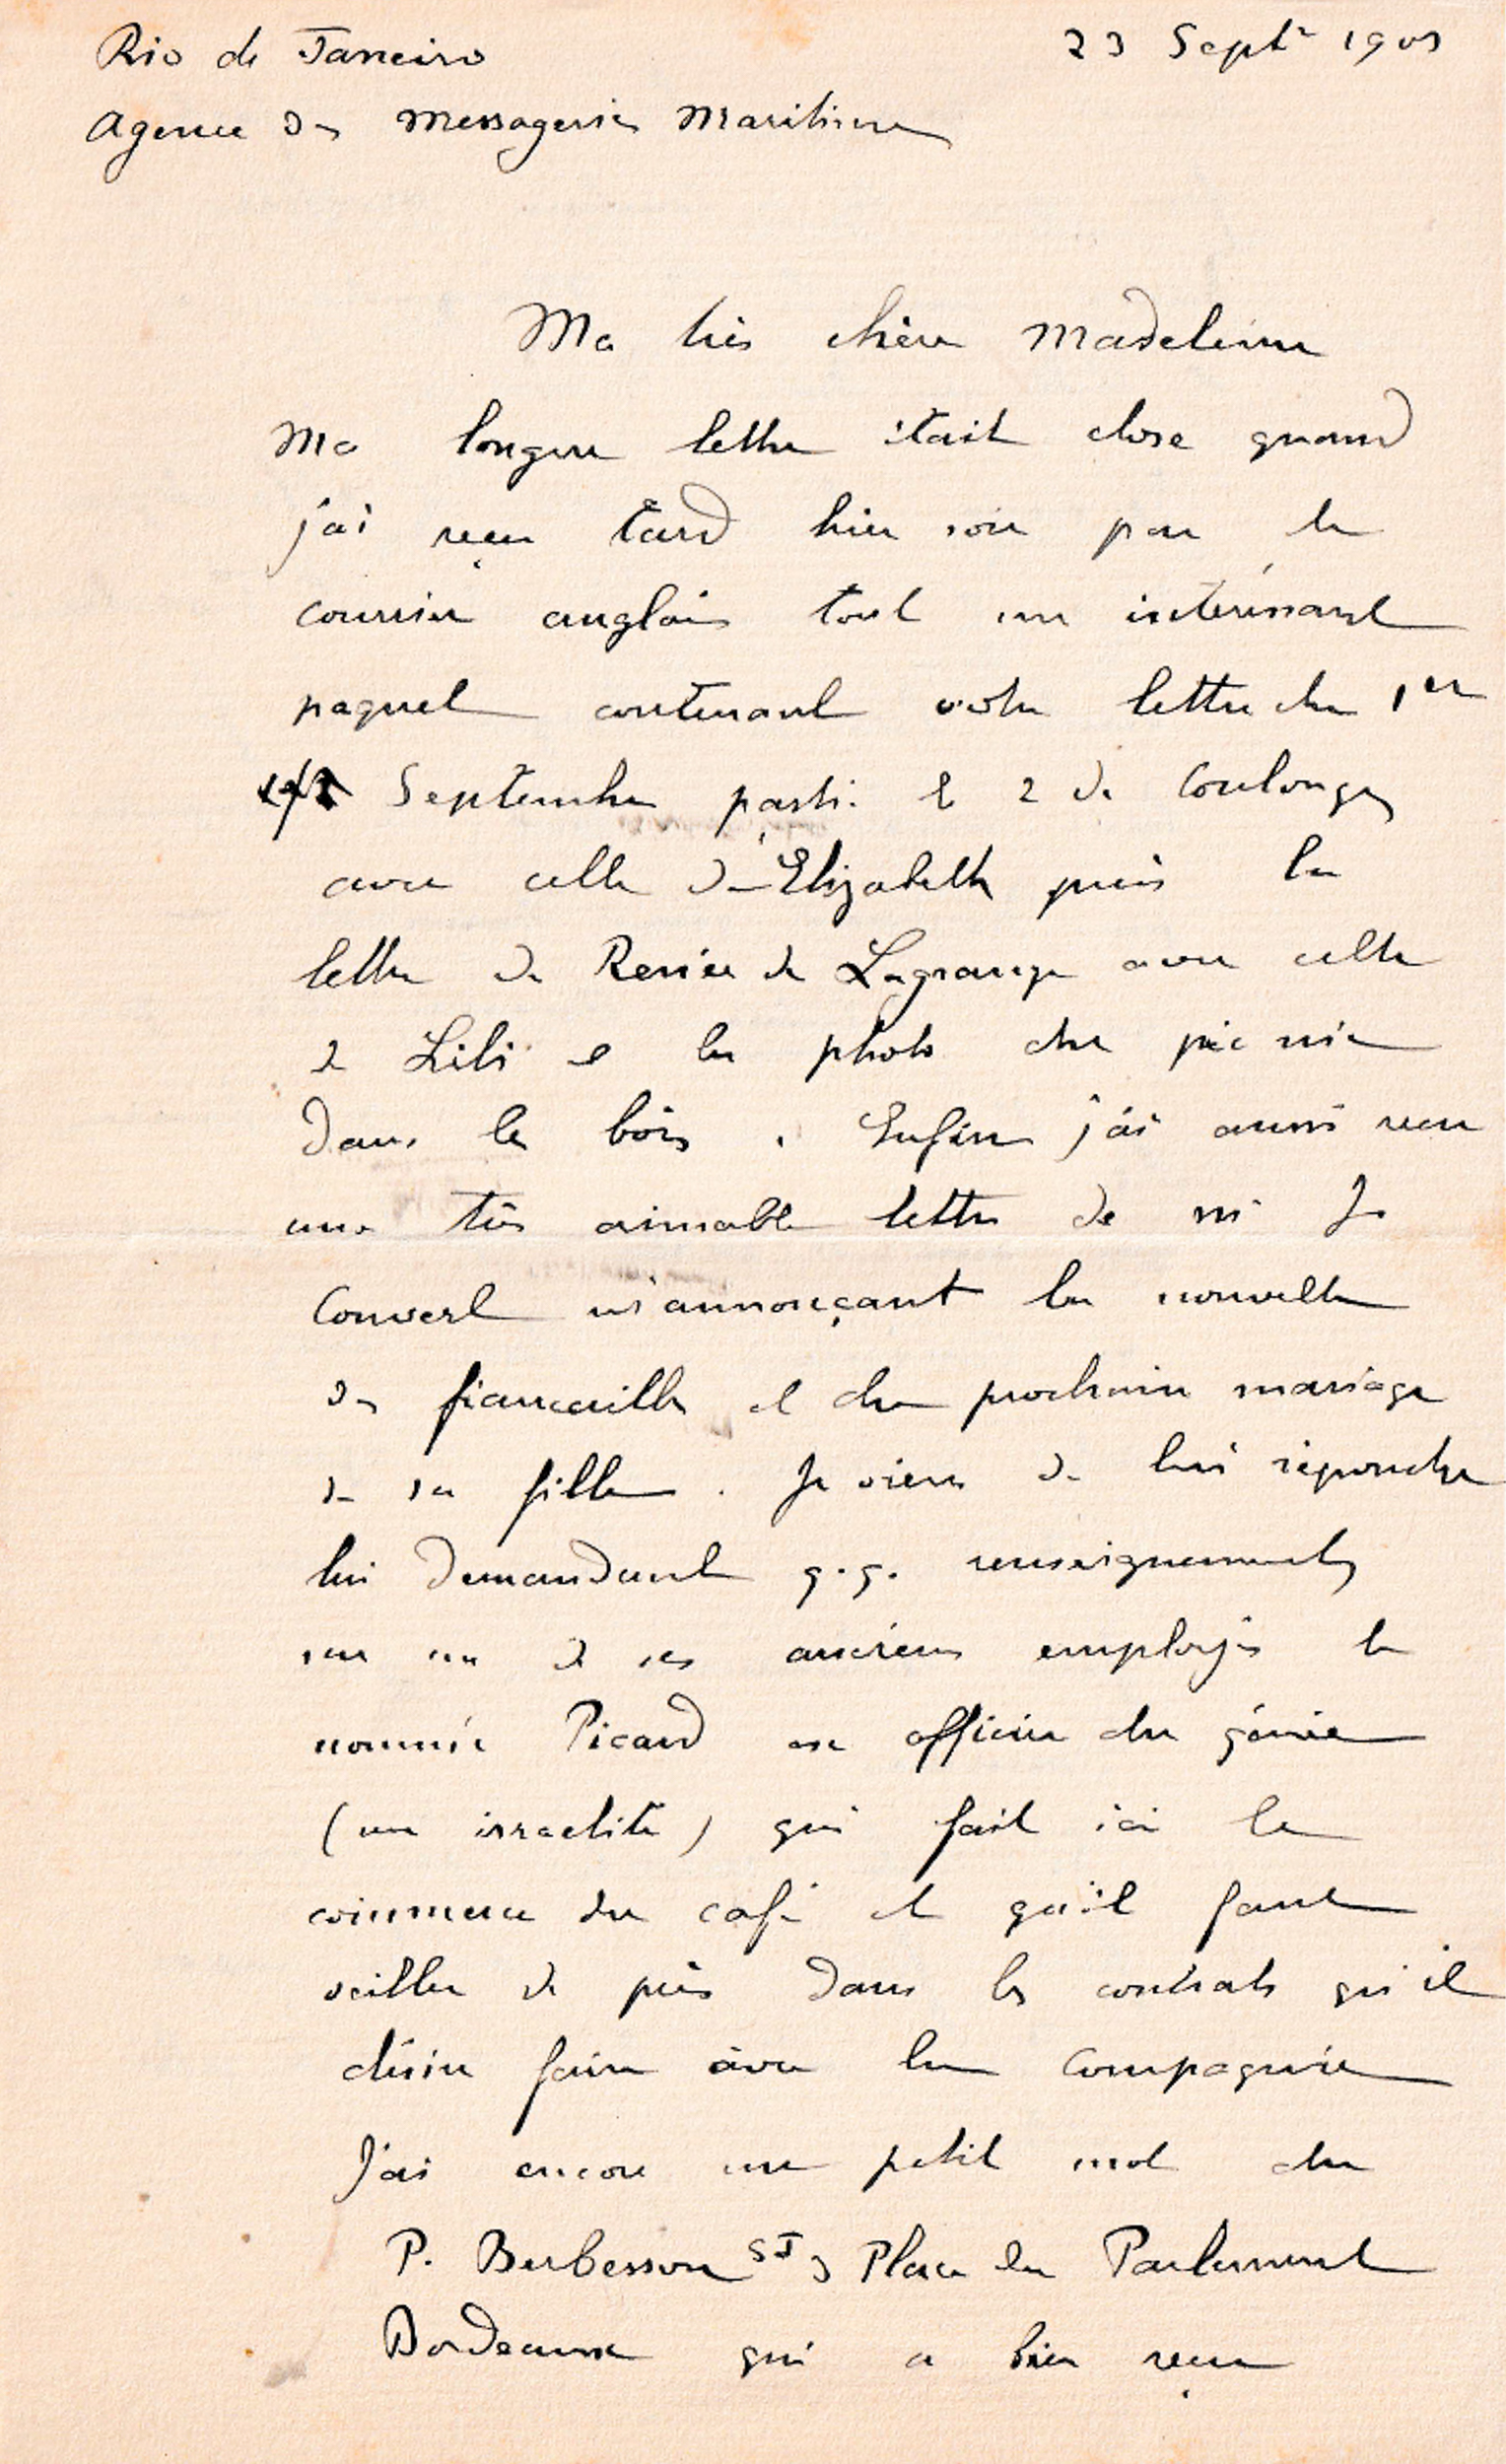 Rio de Janeiro 23 Sept^r 190
Agence des Messageries Maritimes
Ma très chère Madeleine
Ma longue lettre était close quand
j'ai reçu tard hier soir par le
courrier anglais tout un intéressant
paquet contenant votre lettre du 1er
Septembre parti le 2 de Coulonges
avec celle d'Elizabeth puis la
lettre de Renée de Lagrange avec celle
de Lili et la photo du pic nic
dans les bois. Enfin j'ai aussi reçu
une très aimable lettre de Mr
Convert m'annonçant la nouvelle
des fiancailles et du prochain mariage
de sa fille. Je viens de lui répondre
lui demandant q.q. renseignements
sur un de ses anciens employés le
nommé Picard ex officier du génie
(un israelite) qui fait ici le
commerce du café et qu'il faut
veiller de près dans les contrats qu'il
désire faire avec la Compagnie
J'ai encore un petit mot du
P. Berbesson SJ 3 Place du Parlement
Bordeaux qui a bien reçu